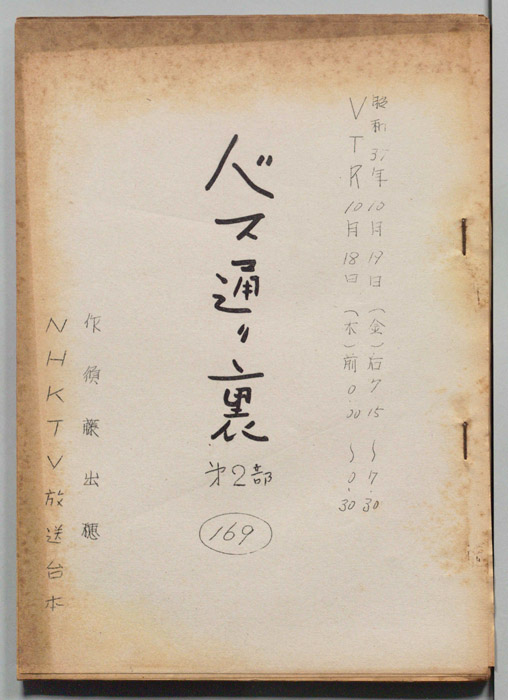 昭和37年10月19日(金)后7.15〜7.30
VTR 10月18日(木)前0.00〜0.30
バス通り裏
第2部
169
作 須藤出穂
NHKTV放送台本